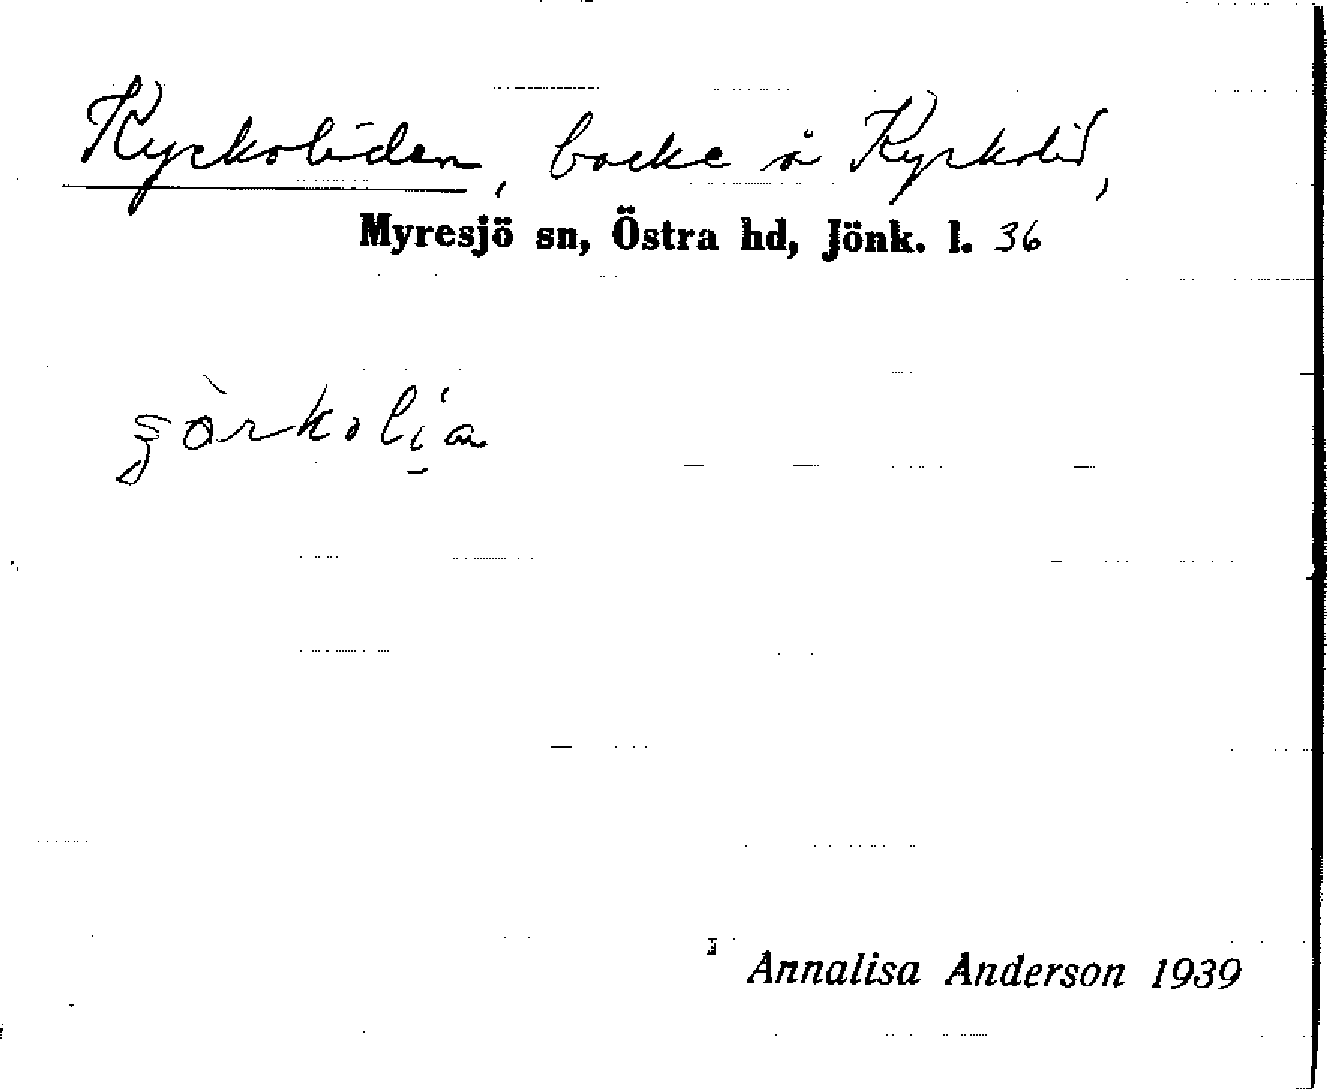 Kyrkoliden, backe å Kyrkolid,
Myresjö sn, Östra hd, Jönk. l. 36
Annalisa Anderson 1939